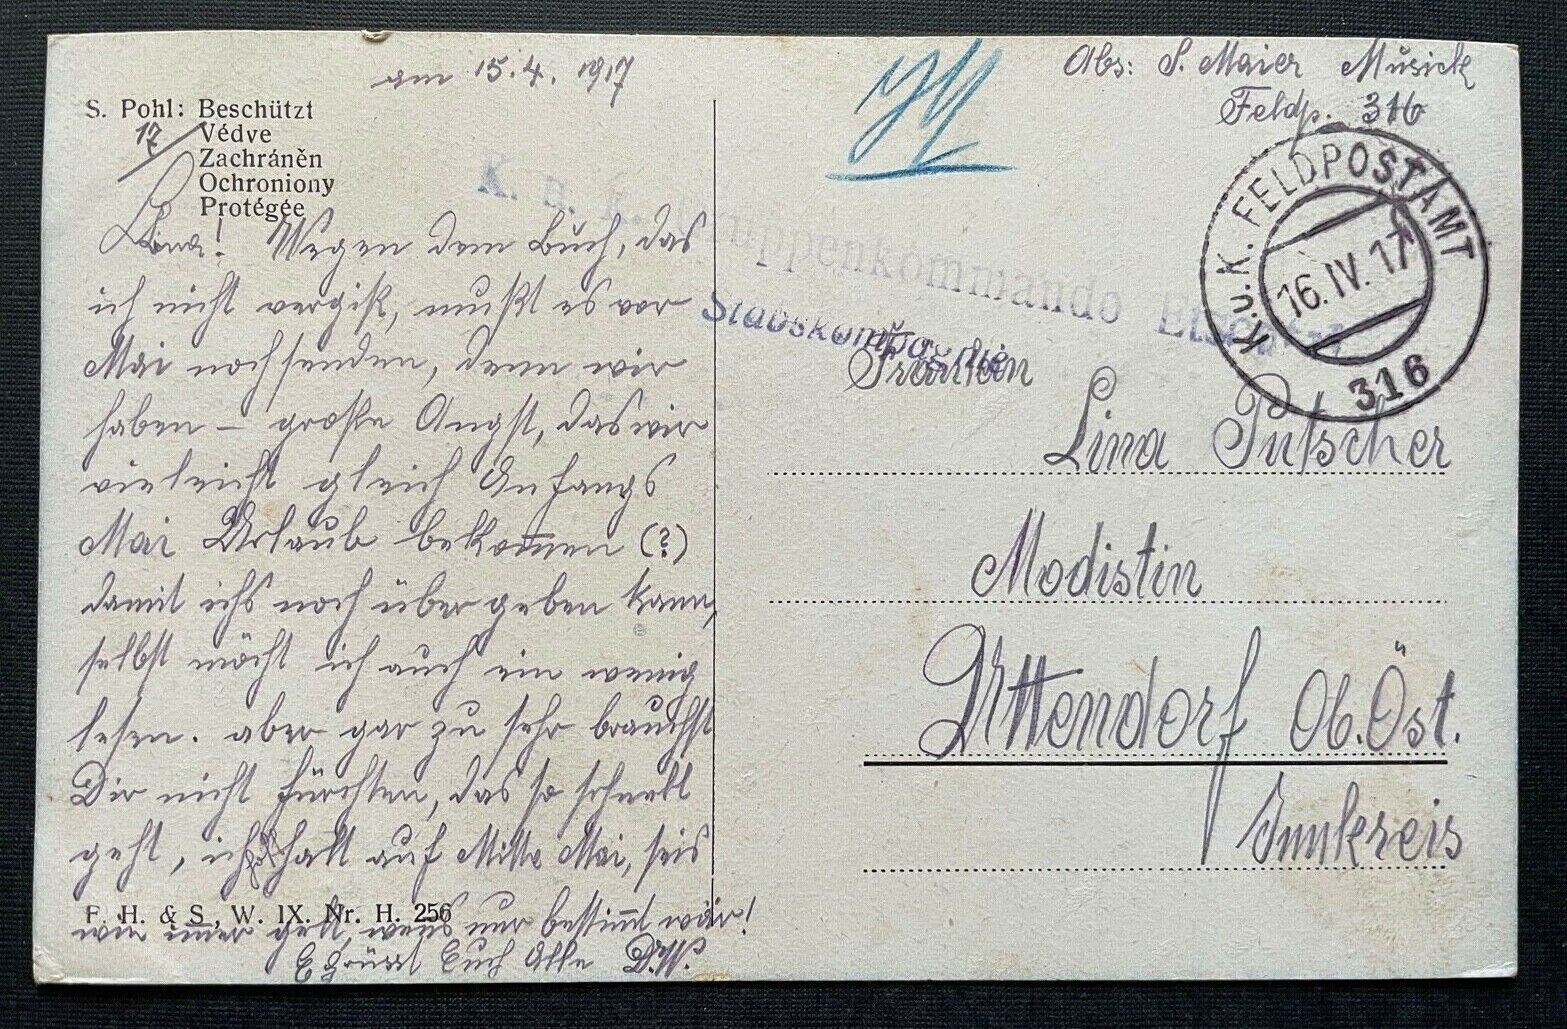 am 15.4. 1917
S. Pohl: Beschützt
Védve
Zachráněn
Ochroniony
Protégée
17/
Lina! Wegen dem Buch, das
ich nicht vergiß, mußt es vor
Mai noch senden, denn wir
haben – große Angst, das wir
vieleicht gleich Anfangs
Mai Urlaub bekommen (?)
damit ichs noch übergeben kann,
selbst möcht ich auch ein wenig
lesen. aber gar zu sehr brauchst
Dir nicht fürchten, das so schnell
geht, ich halt auf Mitte Mai, seis
wie immer geht, wens nur bestimmt wär!
Es grüsst Euch Alle D.W.
F. H. & S., W. IX. Nr. H. 256
Abs: S. Maier Musick
Feldp. 316
K.u.K. FELDPOSTAMT
16.IV.17
316
K. u. K. Gruppenkommando
Stabskompagnie
Fräulein
Lina Putscher
Modistin
Uttendorf Ob. Öst.
Innkreis